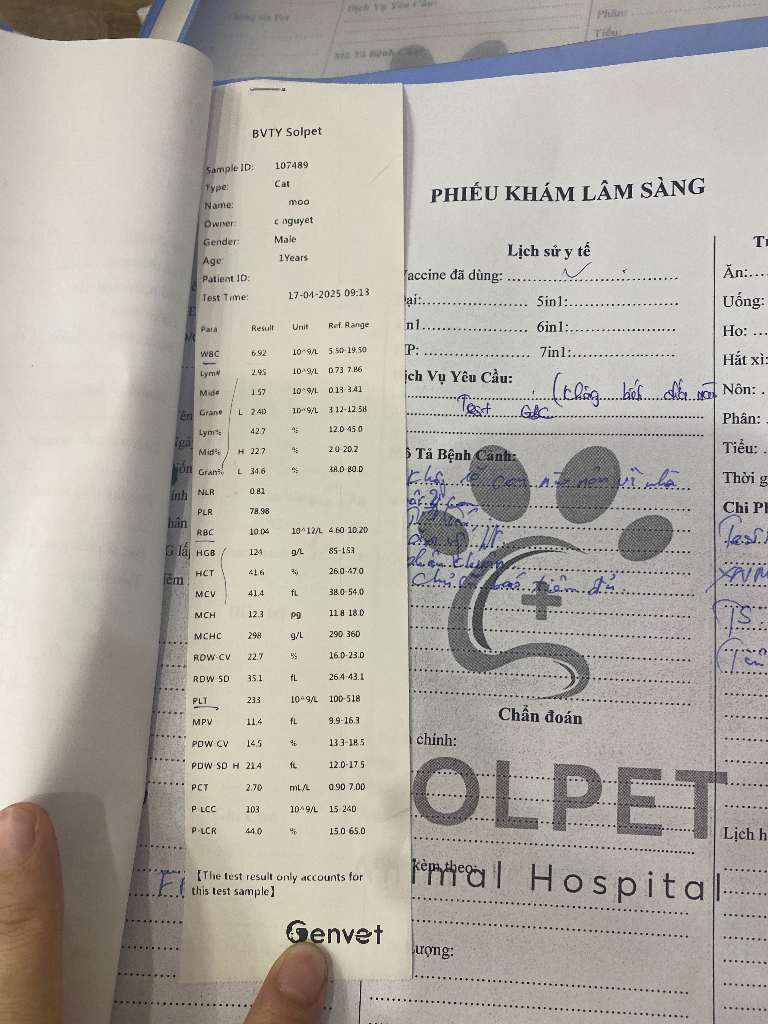 Dịch Vụ Yêu Cầu:
Phân:
Tiểu:
Mô Tả Bệnh Cảnh:
BVTY Solpet
Sample ID: 107489
Type: Cat
Name: moo
Owner: c nguyet
Gender: Male
Age: 1Years
Patient ID:
Test Time: 17-04-2025 09:13
Para Result Unit Ref. Range
WBC 6.92 10^9/L 5.50-19.50
Lym# 2.95 10^9/L 0.73-7.86
Mid# 1.57 10^9/L 0.13-3.41
Gran# L 2.40 10^9/L 3.12-12.58
Lym% 42.7 % 12.0-45.0
Mid% H 22.7 % 2.0-20.2
Gran% L 34.6 % 38.0-80.0
NLR 0.81
PLR 78.98
RBC 10.04 10^12/L 4.60-10.20
HGB 124 g/L 85-153
HCT 41.6 % 26.0-47.0
MCV 41.4 fL 38.0-54.0
MCH 12.3 pg 11.8-18.0
MCHC 298 g/L 290-360
RDW-CV 22.7 % 16.0-23.0
RDW-SD 35.1 fL 26.4-43.1
PLT 233 10^9/L 100-518
MPV 11.4 fL 9.9-16.3
PDW-CV 14.5 % 13.3-18.5
PDW-SD H 21.4 fL 12.0-17.5
PCT 2.70 mL/L 0.90-7.00
P-LCC 103 10^9/L 15-240
P-LCR 44.0 % 15.0-65.0
【The test result only accounts for
this test sample】
Genvet
PHIẾU KHÁM LÂM SÀNG
Lịch sử y tế
accine đã dùng:
ại: 5in1:
n1 6in1:
P: 7in1:
ịch Vụ Yêu Cầu:
Test
ô Tả Bệnh Cảnh:
Chẩn đoán
chính:
OLPET
kèm theo:
nimal Hospital
ượng:
Ăn:
Uống:
Ho:
Hắt xì:
Nôn:
Phân:
Tiểu:
Thời g
Chi Ph
Lịch h